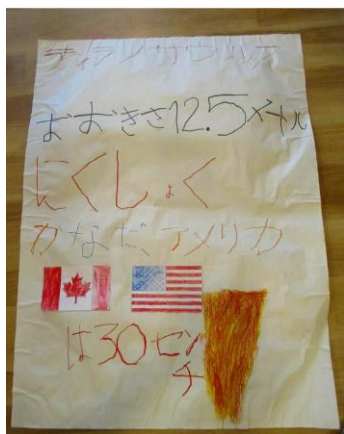 ティラノサウルス
おおきさ12.5メートル
にくしょく
かなだ、アメリカ
は30センチ